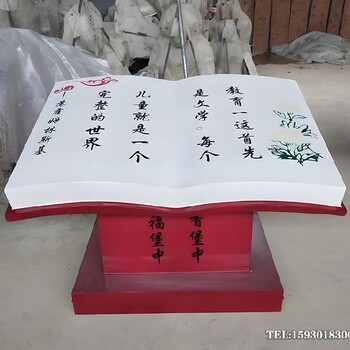 教育一这首先
是文学。每个
儿童就是一个
完整的世界
苏霍姆林斯基
堡中
福堡中
TEL:1593018300